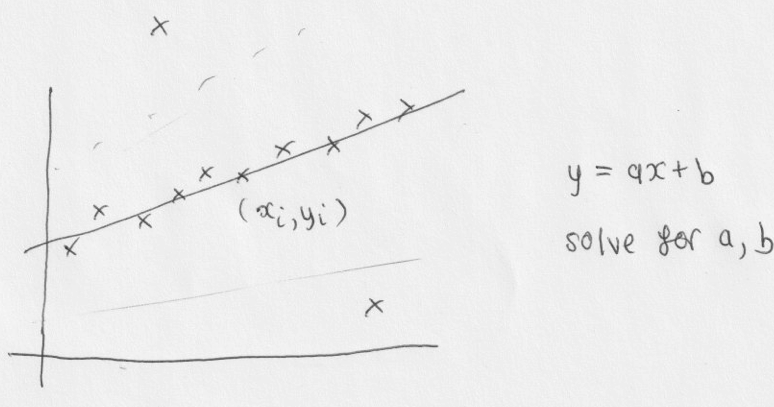 (xi, yi)
y = ax + b
solve for a, b